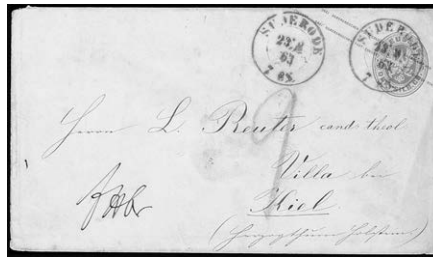 SUDERODE
23
63
7 8
SUDERODE
63
7 8
Herrn L. Reuter cand theol
Villa bei
Kiel
(Herzogthum Holstein)